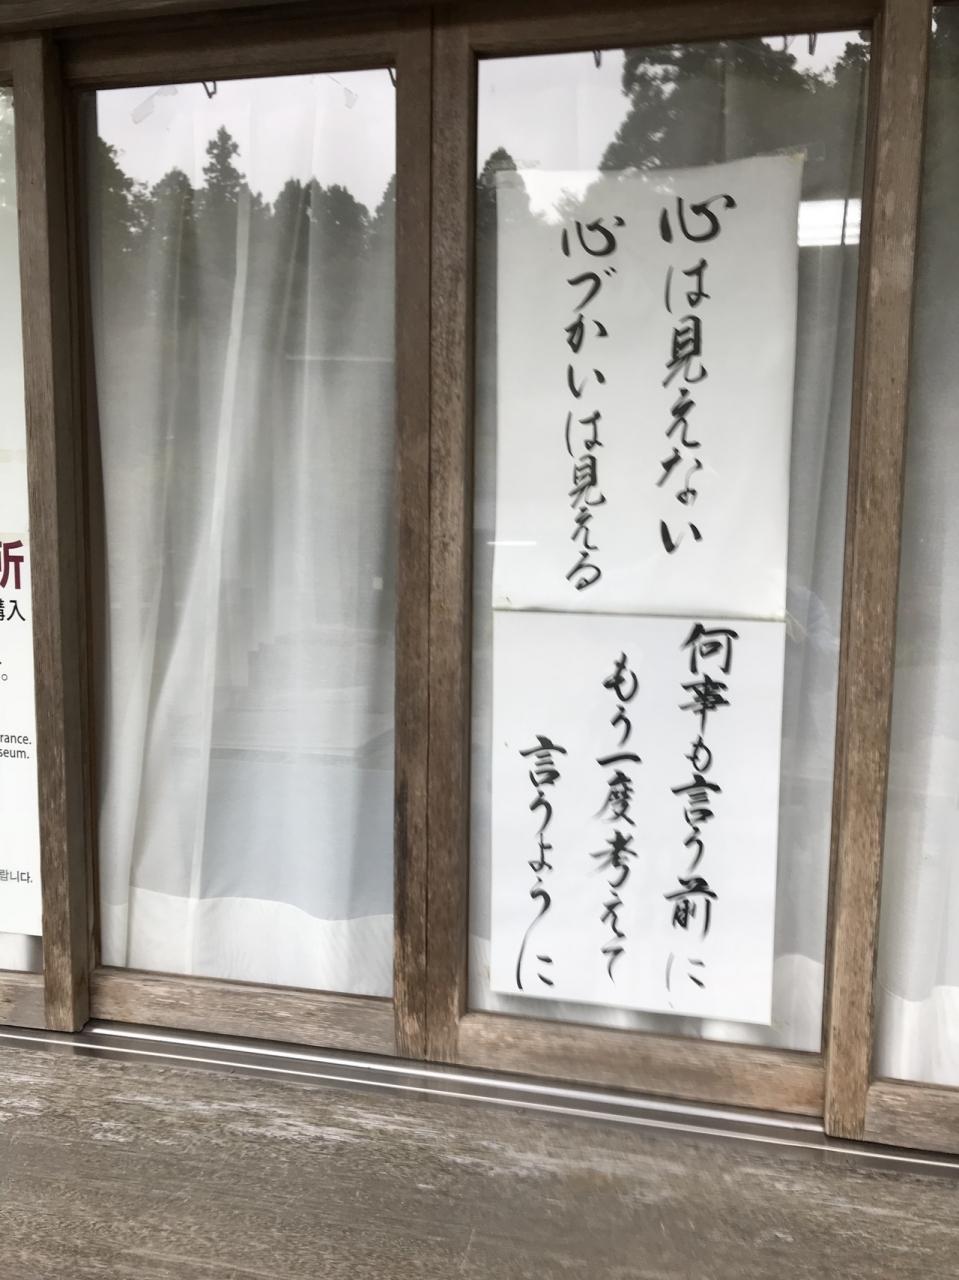 心は見えない
心づかいは見える
何事も言う前に
もう一度考えて
言うように
所
購入
。
rance.
seum.
랍니다.